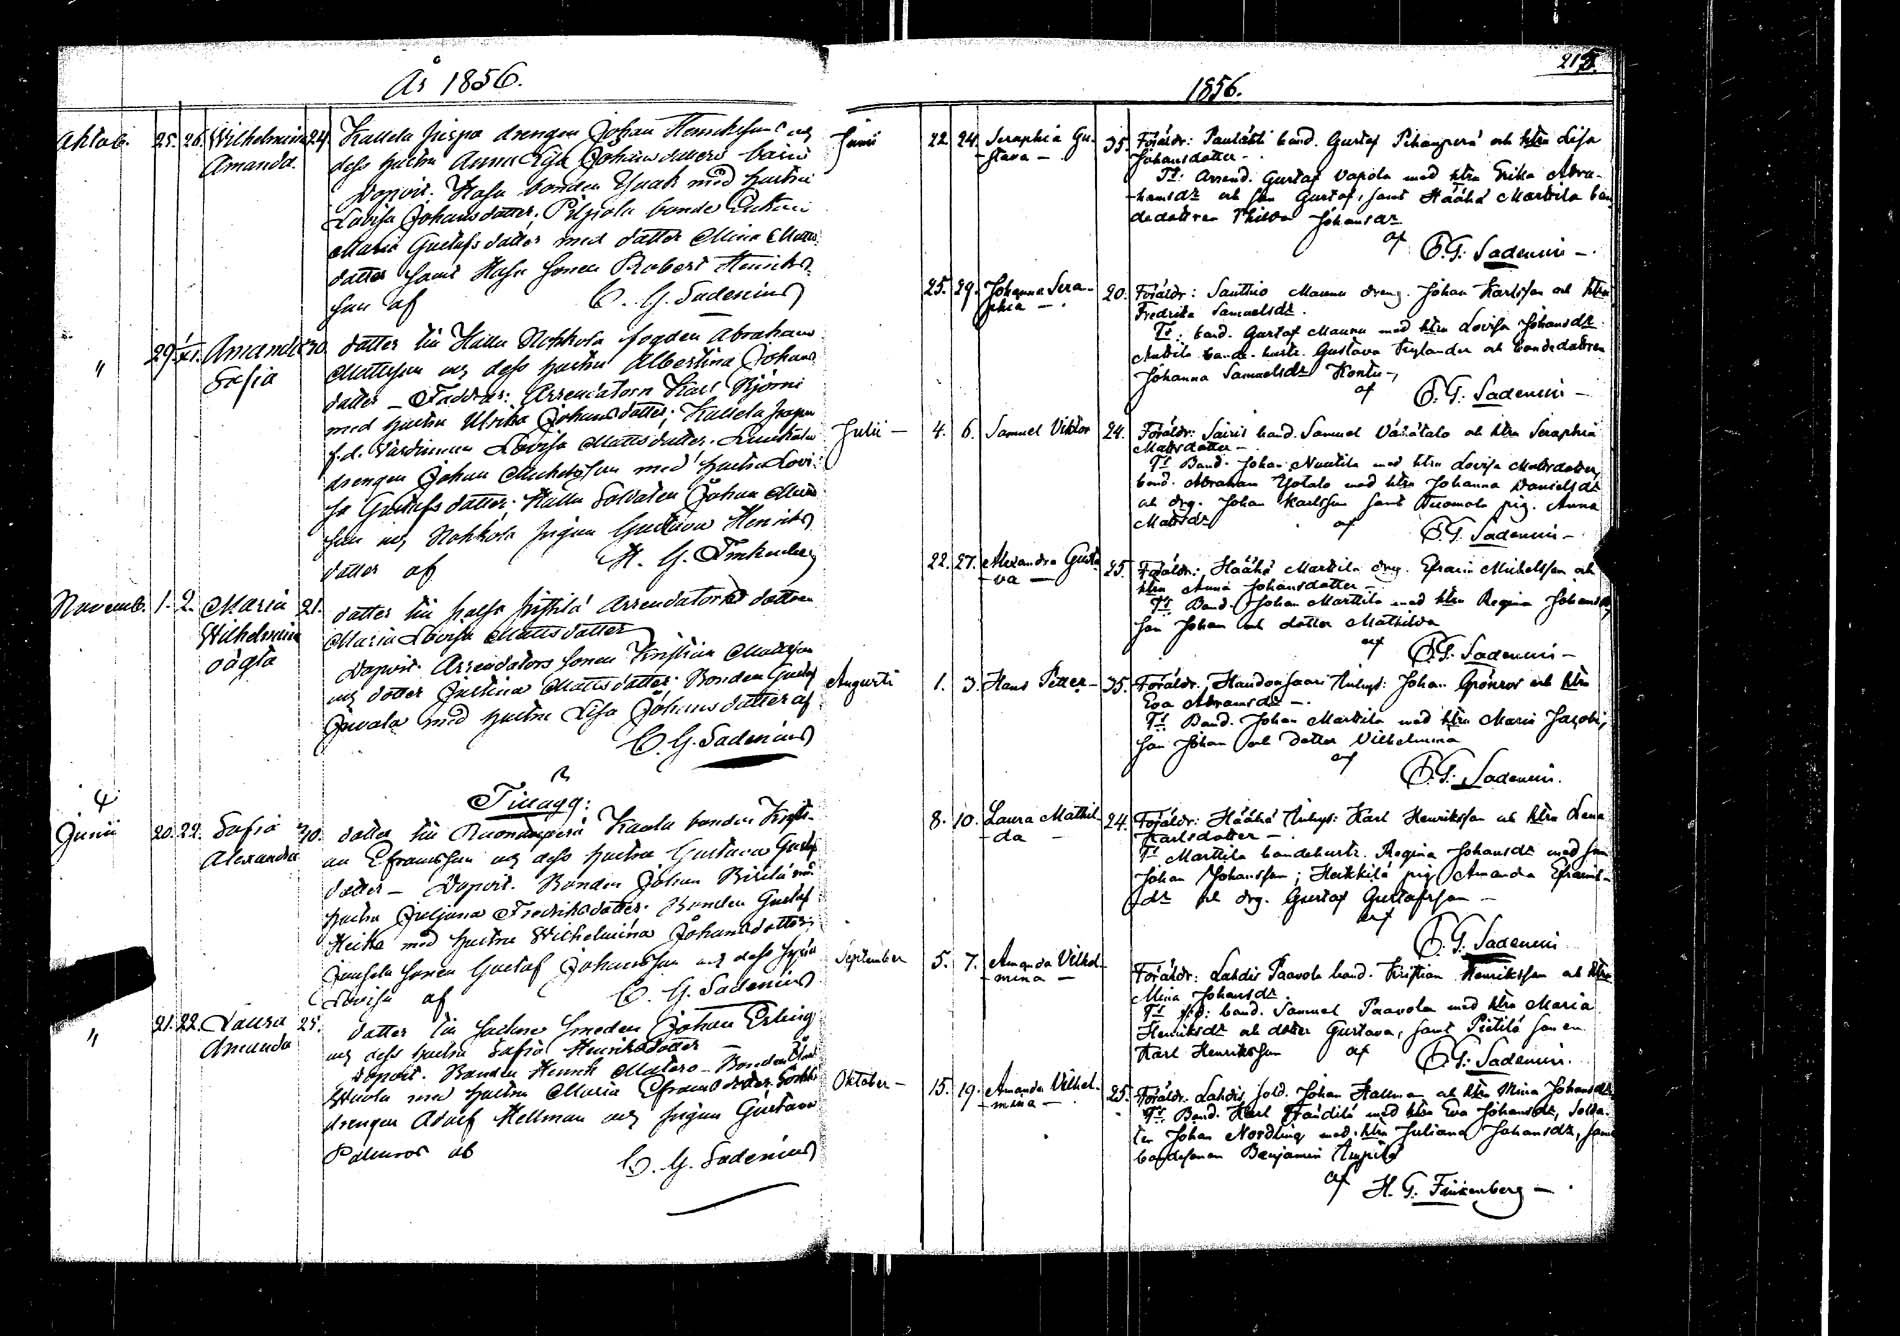 År 1856.
Oktob. 25. 26. Wilhelmina 24. Kallela pigga drengen Johan Henriksson och
Amanda. dess hustru Anna Lisa Johansdotters barn
Dopvit. Hasu bonden Isaak med hustru
Lovisa Johansdotter. Pilpola bonde Enkan
Maria Gustafsdotter med dotter Mina Matts
dotter samt Hasu sonen Robert Henriks
son af C. G. Sadenius
" 29. 1/XI. Amanda 30. dotter till Kallu Nohkola fogden Abraham
Sofia Mattsson och dess hustru Albertina Johans
dotter – Faddrar: Arrendatorn Karl Björni
med hustru Ulrika Johansdotter; Kallela
f.d. Lovisa Mattsdotter.
drengen Johan Michelsson med hustru Lovi-
sa Gustafsdotter. Kallu Soldaten Johan
son och Nohkola pigan Gustava Henriks
dotter af H. G. Finkenberg
Novemb. 1. 2. Maria 21. dotter till Arrendators dottren
Wilhelmina Maria Lovisa Mattsdotter
oägta Dopvit. Arrendators sonen Kristian Mattsson
och dotter Justina Mattsdotter. Bonden Gustaf
Juvala med hustru Lisa Johansdotter af
C. G. Sadenius
Tillägg:
Junii 20. 22. Sofia 30. dotter till Ruonanperä Kaala bonden Kristi-
Alexandra an Efraimsson och dess hustru Gustava Gustafs
dotter – Dopvit. Bonden Johan med
hustru Juljana Fredriksdotter. Bonden Gustaf
Heikka med hustru Wilhelmina Johansdotter;
sonen Gustaf Johansson och dess
Lovisa af C. G. Sadenius
" 21. 22. Laura 25. dotter till smeden Johan Erling
Amanda och dess hustru Sofia Henriksdotter –
Dopvit. Bonden Henrik Matero – Bonden
med hustru Maria Efraimsdotter.
drengen Adolf Hellman och pigan Gustava
Palmroos af C. G. Sadenius
215.
1856.
Junii 22. 24. Seraphia Gu- 35. Föräldr: Paulahti bond. Gustaf Pihanperä och htru Lisa
-stava – Johansdotter –
Ts: Arrend. Gustaf Vapola med htru Erika Abra-
-hamsdr och son Gustaf, samt Häähä Marttila bon
dedottren Thilda Johansdr
af C. G. Sadenius –
25. 29. Johanna Sera- 20. Föräldr: Santtio Maunu dreng. Johan Karlsson och htru
phia – Fredrika Samuelsdr.
Ts: bond. Gustaf Maunu med htru Lovisa Johansdr
Mattila bonde. hustr. Gustava Frylander och bondedottren
Johanna Samuelsdr Hontu –,
af C. G. Sadenius –
Julii – 4. 6. Samuel Viktor 24. Föräldr: Säiriö bond. Samuel Vääätalo och htru Seraphia
Mattsdotter –
Ts Bond. Johan Nuutila med htru Lovisa Mattsdotter,
bond. Abraham Yötalo med htru Johanna Danielsdr
och drg. Johan Karlsson samt Tuomola pig. Anna
Mattsdr af C. G. Sadenius –
22. 27. Alexandra Gusta 25. Föräldr: Häähä Marttila drg. Efraim Michelsson och
-va – htru Anna Johansdotter –
Ts Bond. Johan Marttila med htru Regina Johansdr,
son Johan och dotter Mathilda
af C. G. Sadenius –
Augusti 1. 3. Hans Petter – 35. Föräldr: Haudonsaari Inhys: Johan Grönroos och htru
Eva Abramsdr –.
Ts Bond. Johan Marttila med htru Maria Jakobi,
son Johan och dotter Vilhelmina
af C. G. Sadenius.
8. 10. Laura Mathil- 24. Föräldr: Häähä Inhys: Karl Henriksson och htru Lena
-da – Karlsdotter –.
Ts Marttila bondehustr. Regina Johansdr med son
Johan Johansson; Heikkilä pig. Amanda Efraims-
dr och drg. Gustaf Gustafsson –
af C. G. Sadenius
September 5. 7. Amanda Vilhel- Föräldr: Lahdis Paavola bond. Kristian Henriksson och htru
-mina – Mina Johansdr.
Ts bond. Samuel Paavola med htru Maria
Henriksdr och dotter Gustava, samt Pietilä sonen
Karl Henriksson af C. G. Sadenius.
Oktober – 15. 19. Amanda Vilhel- 25. Föräldr: Lahdis sold. Johan Hallman och htru Mina Johansdr.
-mina – Ts Bond. Karl med htru Eva Johansdr, Solda-
ten Johan Nordling med htru Juliana Johansdr, samt
bondesonen Benjamin
af H. G. Finkenberg –